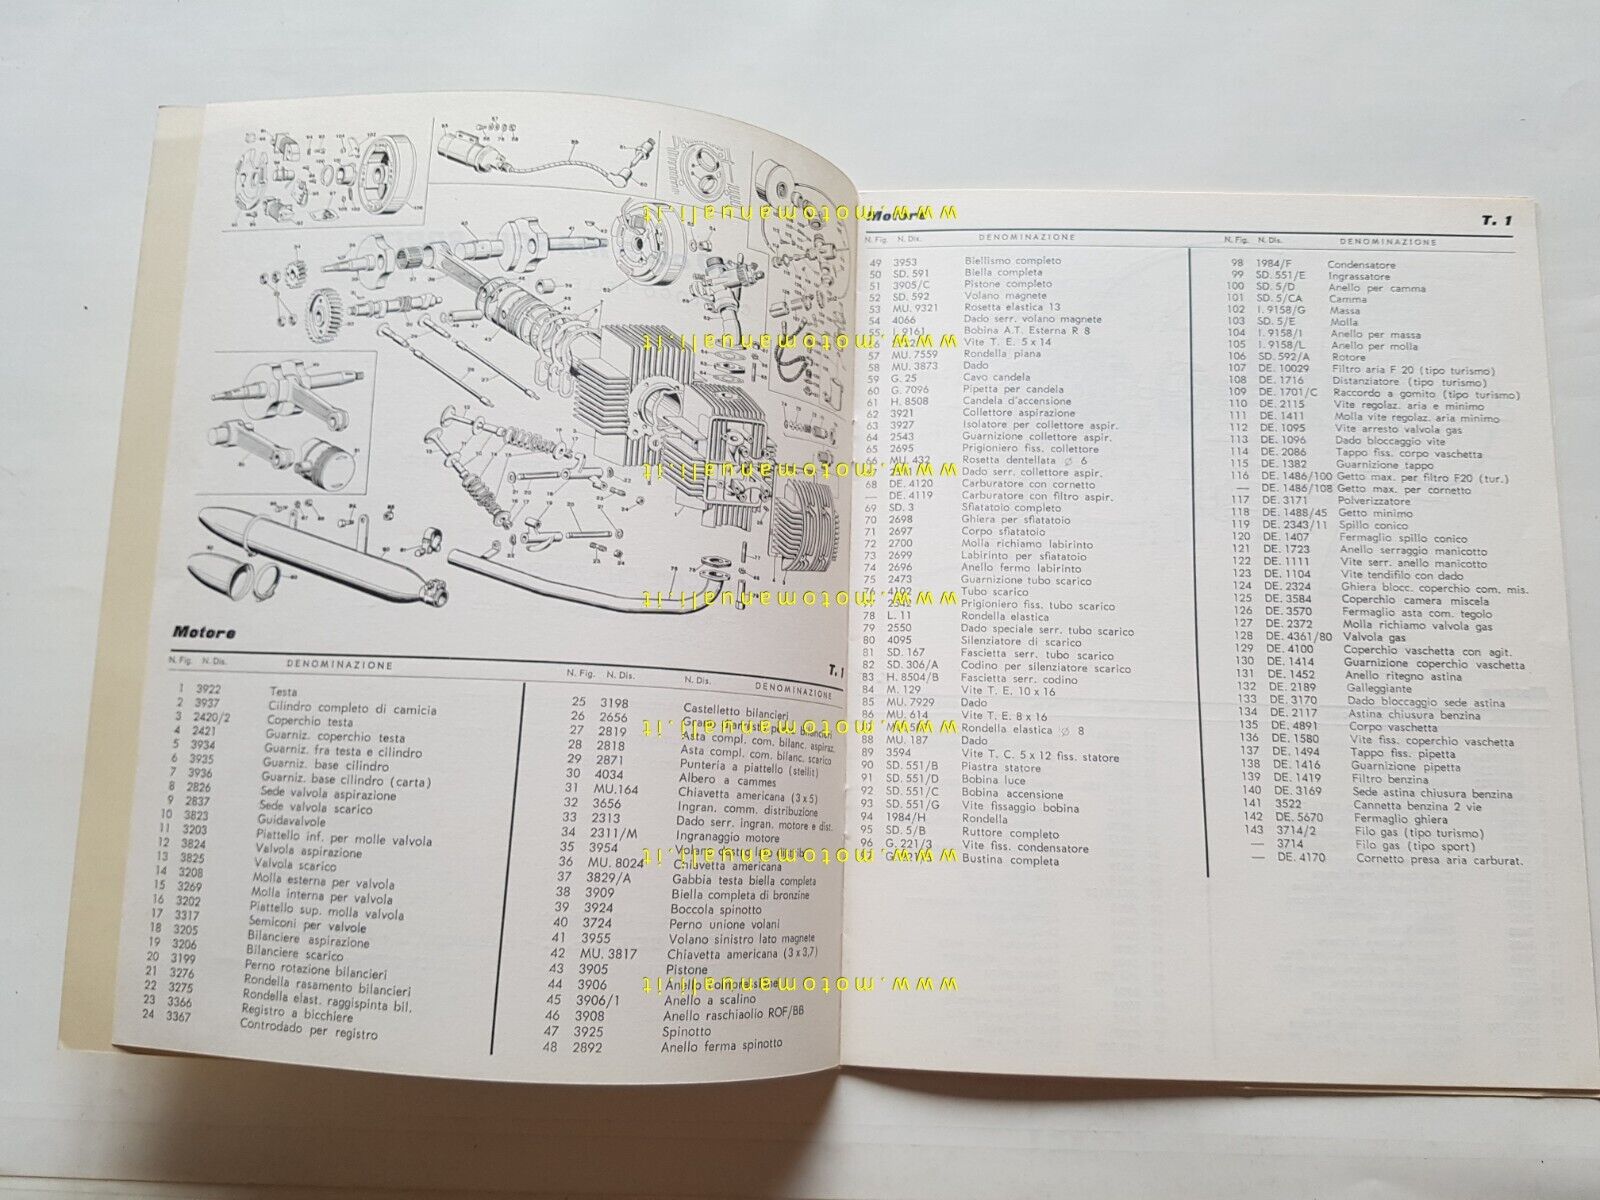 Motore
T. 1
N. Fig. N. Dis. DENOMINAZIONE
1 3922 Testa
2 3937 Cilindro completo di camicia
3 2420/2 Coperchio testa
4 2421 Guarniz. coperchio testa
5 3934 Guarniz. fra testa e cilindro
6 3935 Guarniz. base cilindro
7 3936 Guarniz. base cilindro (carta)
8 2826 Sede valvola aspirazione
9 2837 Sede valvola scarico
10 3823 Guidavalvole
11 3203 Piattello inf. per molle valvola
12 3824 Valvola aspirazione
13 3825 Valvola scarico
14 3208 Molla esterna per valvola
15 3269 Molla interna per valvola
16 3202 Piattello sup. molla valvola
17 3317 Semiconi per valvole
18 3205 Bilanciere aspirazione
19 3206 Bilanciere scarico
20 3199 Perno rotazione bilancieri
21 3276 Rondella rasamento bilancieri
22 3275 Rondella elast. raggispinta bil.
23 3366 Registro a bicchiere
24 3367 Controdado per registro
N. Fig. N. Dis. N. Dis. DENOMINAZIONE
25 3198 Castelletto bilancieri
26 2656 Grano
27 2819 Asta compl. com. bilanc. aspiraz.
28 2818 Asta compl. com. bilanc. scarico
29 2871 Punteria a piattello (stellit)
30 4034 Albero a cammes
31 MU.164 Chiavetta americana (3x5)
32 3656 Ingran. comm. distribuzione
33 2313 Dado serr. ingran. motore e dist.
34 2311/M Ingranaggio motore
35 3954 Volano destro lato
36 MU. 8024 Chiavetta americana
37 3829/A Gabbia testa biella completa
38 3909 Biella completa di bronzine
39 3924 Boccola spinotto
40 3724 Perno unione volani
41 3955 Volano sinistro lato magnete
42 MU. 3817 Chiavetta americana (3x3,7)
43 3905 Pistone
44 3906 Anello
45 3906/1 Anello a scalino
46 3908 Anello raschiaolio ROF/BB
47 3925 Spinotto
48 2892 Anello ferma spinotto
Motore
T. 1
N. Fig. N. Dis. DENOMINAZIONE
49 3953 Biellismo completo
50 SD. 591 Biella completa
51 3905/C Pistone completo
52 SD. 592 Volano magnete
53 MU. 9321 Rosetta elastica 13
54 4066 Dado serr. volano magnete
55 I. 9161 Bobina A.T. Esterna R 8
Vite T. E. 5 x 14
57 MU. 7559 Rondella piana
58 MU. 3873 Dado
59 G. 25 Cavo candela
60 G. 7096 Pipetta per candela
61 H. 8508 Candela d'accensione
62 3921 Collettore aspirazione
63 3927 Isolatore per collettore aspir.
64 2543 Guarnizione collettore aspir.
65 2695 Prigioniero fiss. collettore
66 MU. 432 Rosetta dentellata ∅ 6
Dado serr. collettore aspir.
68 DE. 4120 Carburatore con cornetto
— DE. 4119 Carburatore con filtro aspir.
69 SD. 3 Sfiatatoio completo
70 2698 Ghiera per sfiatatoio
71 2697 Corpo sfiatatoio
72 2700 Molla richiamo labirinto
73 2699 Labirinto per sfiatatoio
74 2696 Anello fermo labirinto
75 2473 Guarnizione tubo scarico
76 4192 Tubo scarico
2542 Prigioniero fiss. tubo scarico
78 L. 11 Rondella elastica
79 2550 Dado speciale serr. tubo scarico
80 4095 Silenziatore di scarico
81 SD. 167 Fascietta serr. tubo scarico
82 SD. 306/A Codino per silenziatore scarico
83 H. 8504/B Fascietta serr. codino
84 M. 129 Vite T. E. 10 x 16
85 MU. 7929 Dado
86 MU. 614 Vite T. E. 8 x 16
Rondella elastica ∅ 8
88 MU. 187 Dado
89 3594 Vite T. C. 5 x 12 fiss. statore
90 SD. 551/B Piastra statore
91 SD. 551/D Bobina luce
92 SD. 551/C Bobina accensione
93 SD. 551/G Vite fissaggio bobina
94 1984/H Rondella
95 SD. 5/B Ruttore completo
96 G. 221/3 Vite fiss. condensatore
Bustina completa
N. Fig. N. Dis. DENOMINAZIONE
98 1984/F Condensatore
99 SD. 551/E Ingrassatore
100 SD. 5/D Anello per camma
101 SD. 5/CA Camma
102 I. 9158/G Massa
103 SD. 5/E Molla
104 I. 9158/I Anello per massa
105 I. 9158/L Anello per molla
106 SD. 592/A Rotore
107 DE. 10029 Filtro aria F 20 (tipo turismo)
108 DE. 1716 Distanziatore (tipo turismo)
109 DE. 1701/C Raccordo a gomito (tipo turismo)
110 DE. 2115 Vite regolaz. aria e minimo
111 DE. 1411 Molla vite regolaz. aria minimo
112 DE. 1095 Vite arresto valvola gas
113 DE. 1096 Dado bloccaggio vite
114 DE. 2086 Tappo fiss. corpo vaschetta
115 DE. 1382 Guarnizione tappo
116 DE. 1486/100 Getto max. per filtro F20 (tur.)
— DE. 1486/108 Getto max. per cornetto
117 DE. 3171 Polverizzatore
118 DE. 1488/45 Getto minimo
119 DE. 2343/11 Spillo conico
120 DE. 1407 Fermaglio spillo conico
121 DE. 1723 Anello serraggio manicotto
122 DE. 1111 Vite serr. anello manicotto
123 DE. 1104 Vite tendifilo con dado
124 DE. 2324 Ghiera blocc. coperchio com. mis.
125 DE. 3584 Coperchio camera miscela
126 DE. 3570 Fermaglio asta com. tegolo
127 DE. 2372 Molla richiamo valvola gas
128 DE. 4361/80 Valvola gas
129 DE. 4100 Coperchio vaschetta con agit.
130 DE. 1414 Guarnizione coperchio vaschetta
131 DE. 1452 Anello ritegno astina
132 DE. 2189 Galleggiante
133 DE. 3170 Dado bloccaggio sede astina
134 DE. 2117 Astina chiusura benzina
135 DE. 4891 Corpo vaschetta
136 DE. 1580 Vite fiss. coperchio vaschetta
137 DE. 1494 Tappo fiss. pipetta
138 DE. 1416 Guarnizione pipetta
139 DE. 1419 Filtro benzina
140 DE. 3169 Sede astina chiusura benzina
141 3522 Cannetta benzina 2 vie
142 DE. 5670 Fermaglio ghiera
143 3714/2 Filo gas (tipo turismo)
— 3714 Filo gas (tipo sport)
— DE. 4170 Cornetto presa aria carburat.
www.motomanuali.it
www.motomanuali.it
www.motomanuali.it
www.motomanuali.it
www.motomanuali.it
www.motomanuali.it
www.motomanuali.it